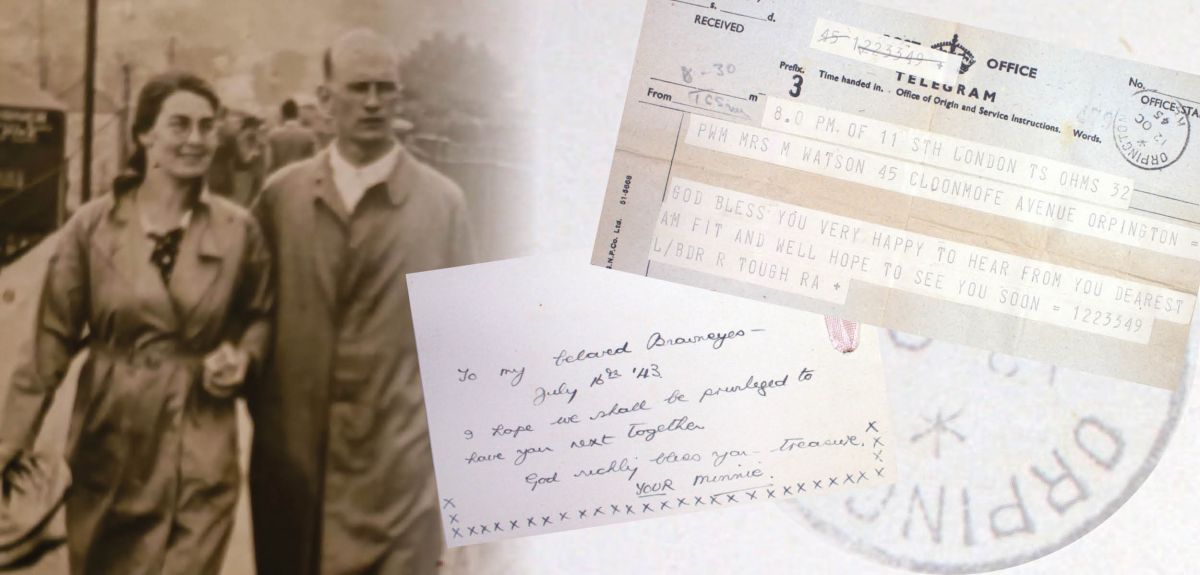 s. d.
RECEIVED
45 1223349 +
OFFICE
TELEGRAM
No.
OFFICE STA
Prefix.
3
Time handed in. Office of Origin and Service Instructions. Words.
8-30
From m
ORPINGTON
12 OC
45
8.0 PM. OF 11 STH LONDON TS OHMS 32
PWM MRS M WATSON 45 CLOONMOFE AVENUE ORPINGTON =
GOD BLESS YOU VERY HAPPY TO HEAR FROM YOU DEAREST
AM FIT AND WELL HOPE TO SEE YOU SOON = 1223349
L/BDR R TOUGH RA +
51-5668
N.P.Co. Ltd.
To my beloved Browneyes—
July 16th '43
I hope we shall be privileged to
have you next together
God richly bless you treasure.
YOUR Minnie.
x
x
x
x
x
x
xxxxxxxxxxxxxxxxxxxxxxxxx
ORPING